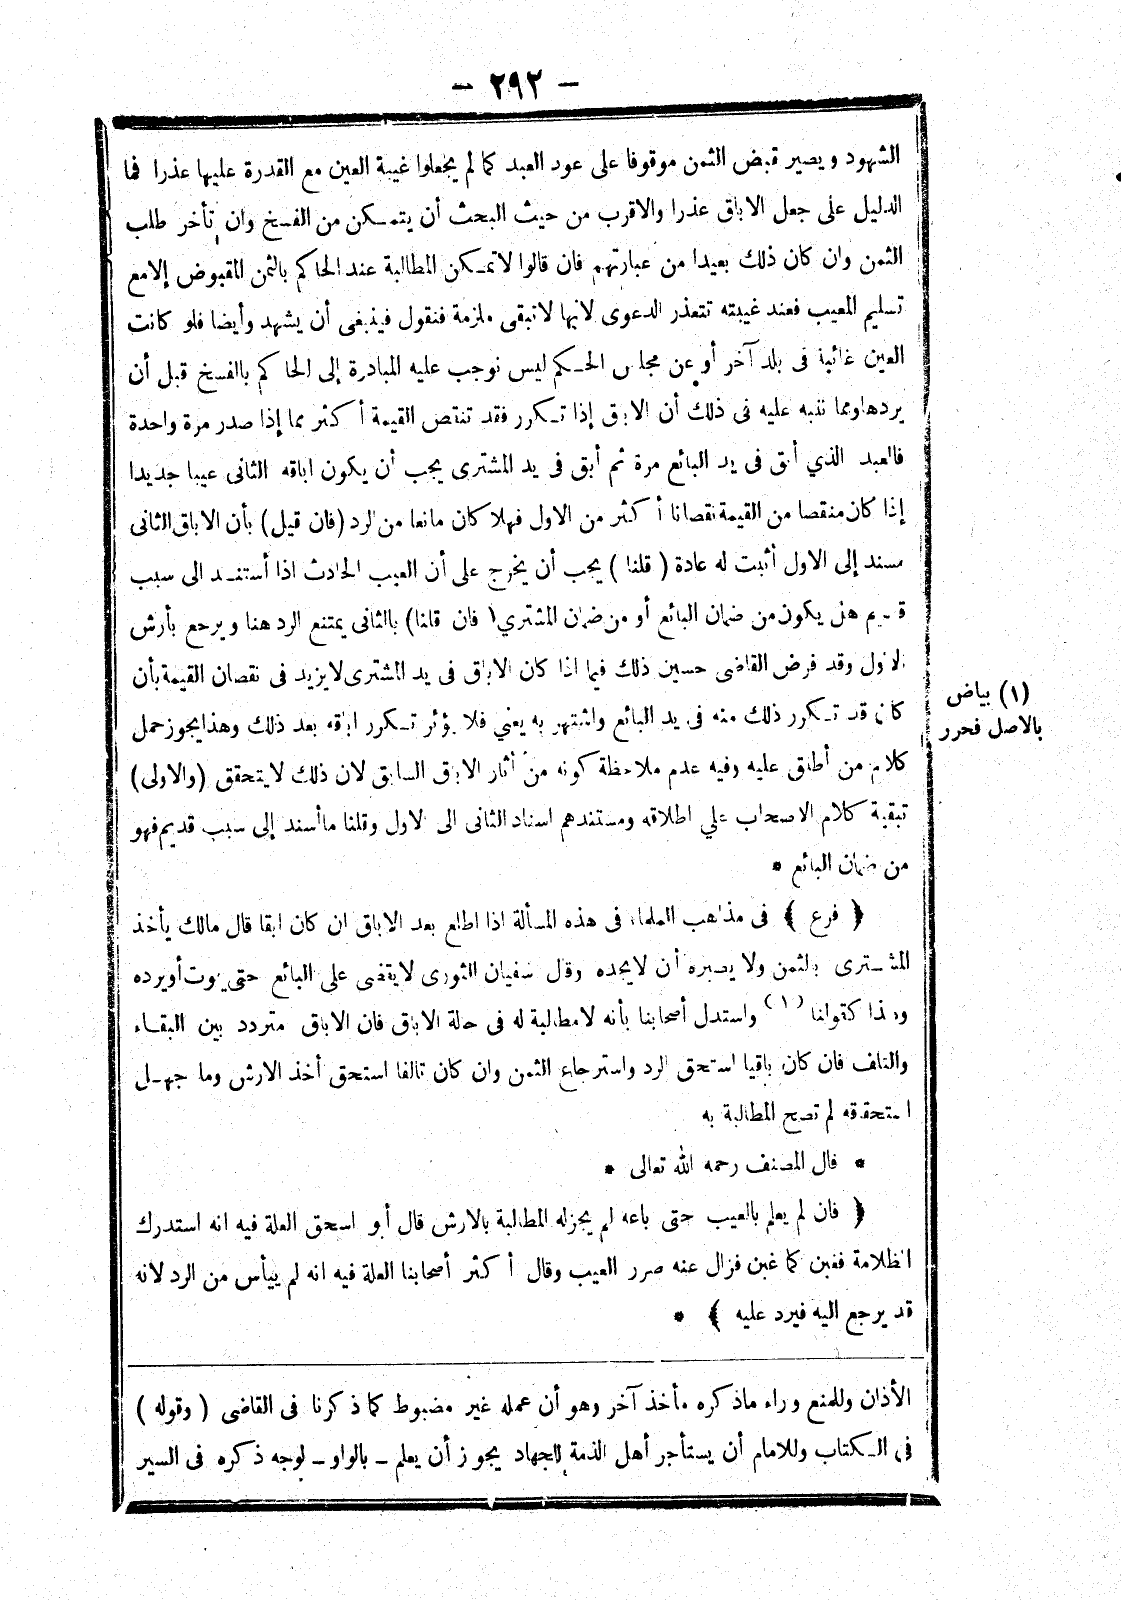 – ٢٩٢ –
الشهود ويصير قبض الثمن موقوفا على عود العبد كما لم يجعلوا غيبة العين مع القدرة عليها عذرا فما
الدليل على جعل الاباق عذرا والاقرب من حيث البحث أن يتمكن من الفسخ وان تأخر طلب
الثمن وان كان ذلك بعيدا من عبارتهم فان قالوا لاتمكن المطالبة عند الحاكم بالثمن المقبوض إلامع
تسليم المعيب فعند غيبته تتعذر الدعوى لانها لاتبقى ملزمة فنقول فينبغى أن يشهد وأيضا فلو كانت
العين غائبة فى بلد آخر أو عن مجلس الحكم ليس نوجب عليه المبادرة إلى الحاكم بالفسخ قبل أن
يردهاومما ننبه عليه فى ذلك أن الابق إذا تكرر فقد تنتقص القيمة أكثر مما إذا صدر مرة واحدة
فالعبد الذي أبق فى يد البائع مرة ثم أبق فى يد المشترى يجب أن يكون اباقه الثانى عيبا جديدا
إذا كان منقصا من القيمة نقصانا أكثر من الاول فهلا كان مانعا من الرد (فان قيل) بأن الاباق الثانى
مسند إلى الاول أثبت له عادة (قلنا) يجب أن يخرج على أن العيب الحادث اذا أستند الى سبب
قديم هل يكون من ضمان البائع أو من ضمان المشتري (فان قلنا) بالثانى يمتنع الرد هنا ويرجع بأرش
الاول وقد فرض القاضى حسين ذلك فيما اذا كان الاباق فى يد المشترى لايزيد فى نقصان القيمة بأن
كان قد تكرر ذلك منه فى يد البائع واشتهر به يعني فلا يؤثر تكرر اباقه بعد ذلك وهذا يجوز حمل
كلام من أطلق عليه وفيه عدم ملاحظة كونه من آثار الاباق السابق لان ذلك لايتحقق (والاولى)
تبقية كلام الاصحاب علي اطلاقه ومستندهم اسناد الثانى الى الاول وقلنا ماأسند إلى سبب قديم فهو
من ضمان البائع *
﴿ فرع ﴾ فى مذاهب العلماء فى هذه المسألة اذا اطلع بعد الاباق ان كان ابقا قال مالك يأخذ
المشترى بالثمن ولا يصبره أن لايجده وقال سفيان الثورى لايقضى على البائع حتى يموت أويرده
وهذا كقولنا (١) واستدل أصحابنا بأنه لامطالبة له فى حالة الاباق فان الاباق متردد بين البقاء
والتلف فان كان باقيا استحق الرد واسترجاع الثمن وان كان تالفا استحق أخذ الارش وما جهل
استحقاقه لم تصح المطالبة به
* قال المصنف رحمه الله تعالى *
﴿ فان لم يعلم بالعيب حتى باعه لم يجزله المطالبة بالارش قال أبو اسحق العلة فيه انه استدرك
الظلامة فغبن كما غبن فزال عنه ضرر العيب وقال أكثر أصحابنا العلة فيه انه لم ييأس من الرد لانه
قد يرجع اليه فيرد عليه ﴾ *
(١) بياض
بالاصل فحرر
الأذان وللمنع وراء ماذكره مأخذ آخر وهو أن عمله غير مضبوط كما ذكرنا فى القاضى (وقوله)
فى الكتاب وللامام أن يستأجر أهل الذمة للجهاد يجوز أن يعلم – بالواو – لوجه ذكره فى السير